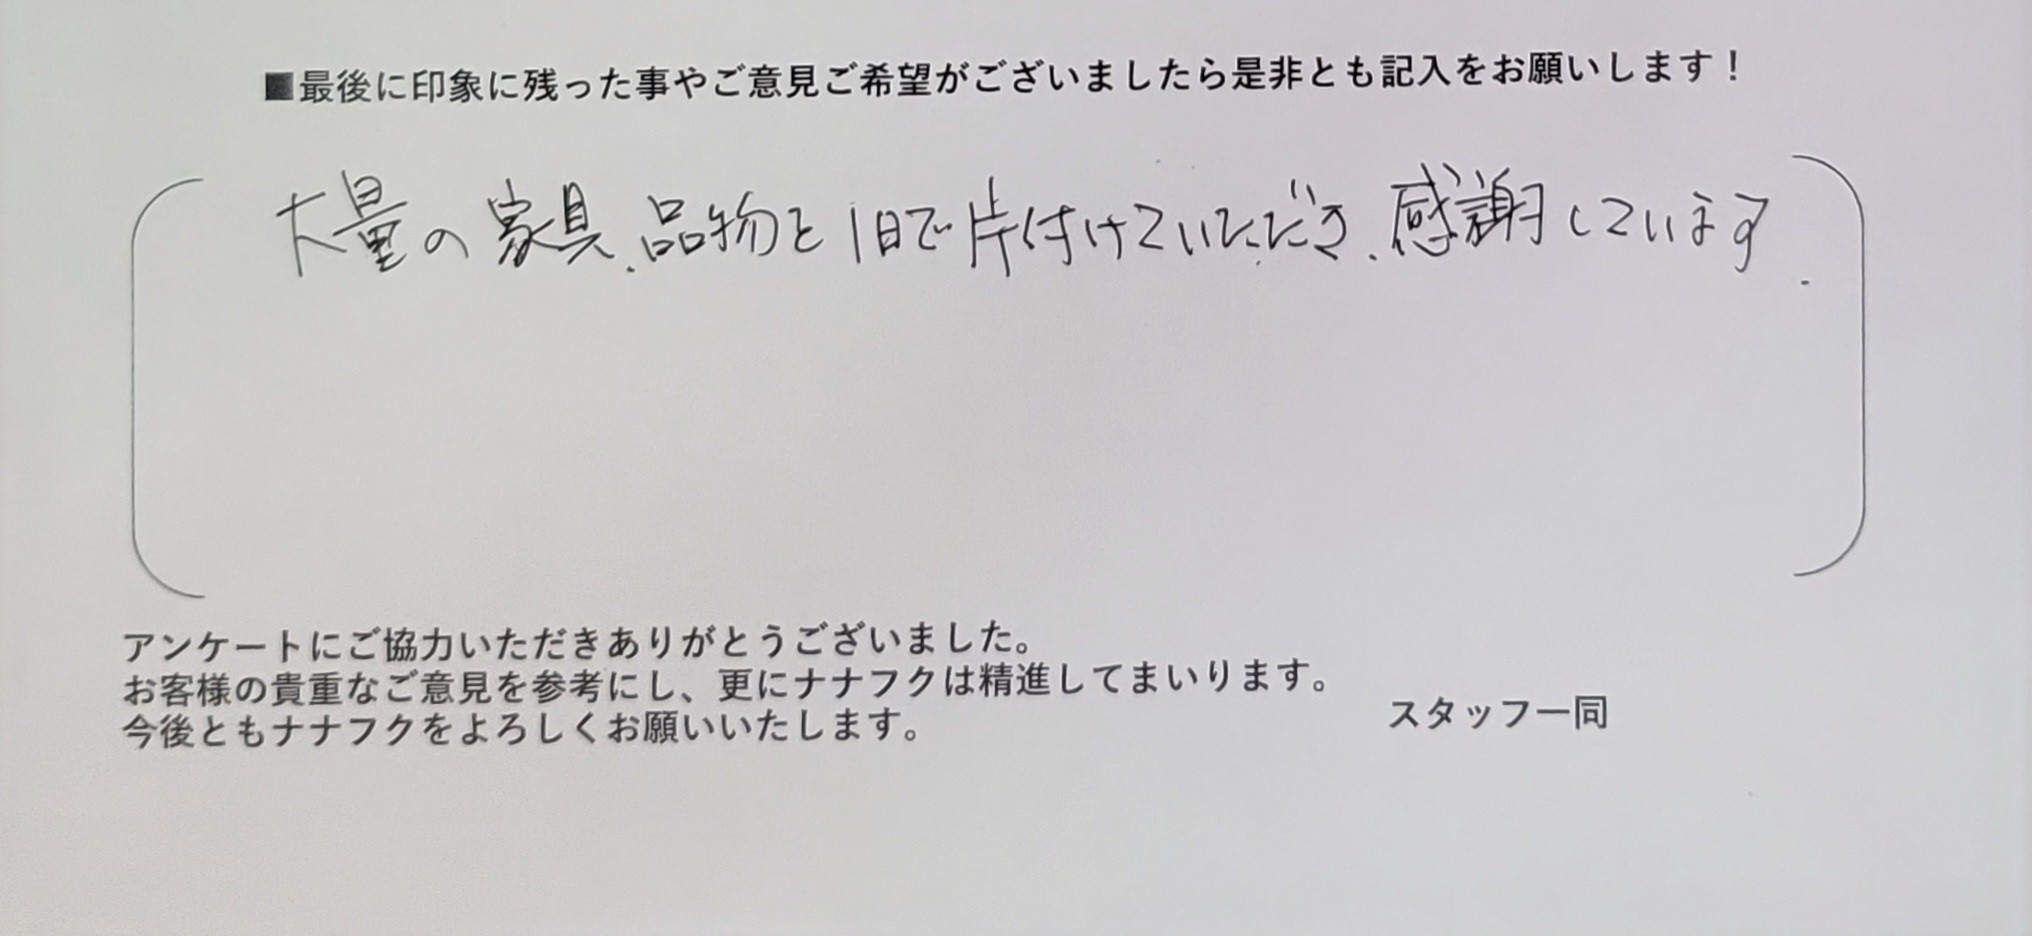 ■最後に印象に残った事やご意見ご希望がございましたら是非とも記入をお願いします！
大量の家具、品物を1日で片付けていただき、感謝しています。
アンケートにご協力いただきありがとうございました。
お客様の貴重なご意見を参考にし、更にナナフクは精進してまいります。
今後ともナナフクをよろしくお願いいたします。
スタッフ一同